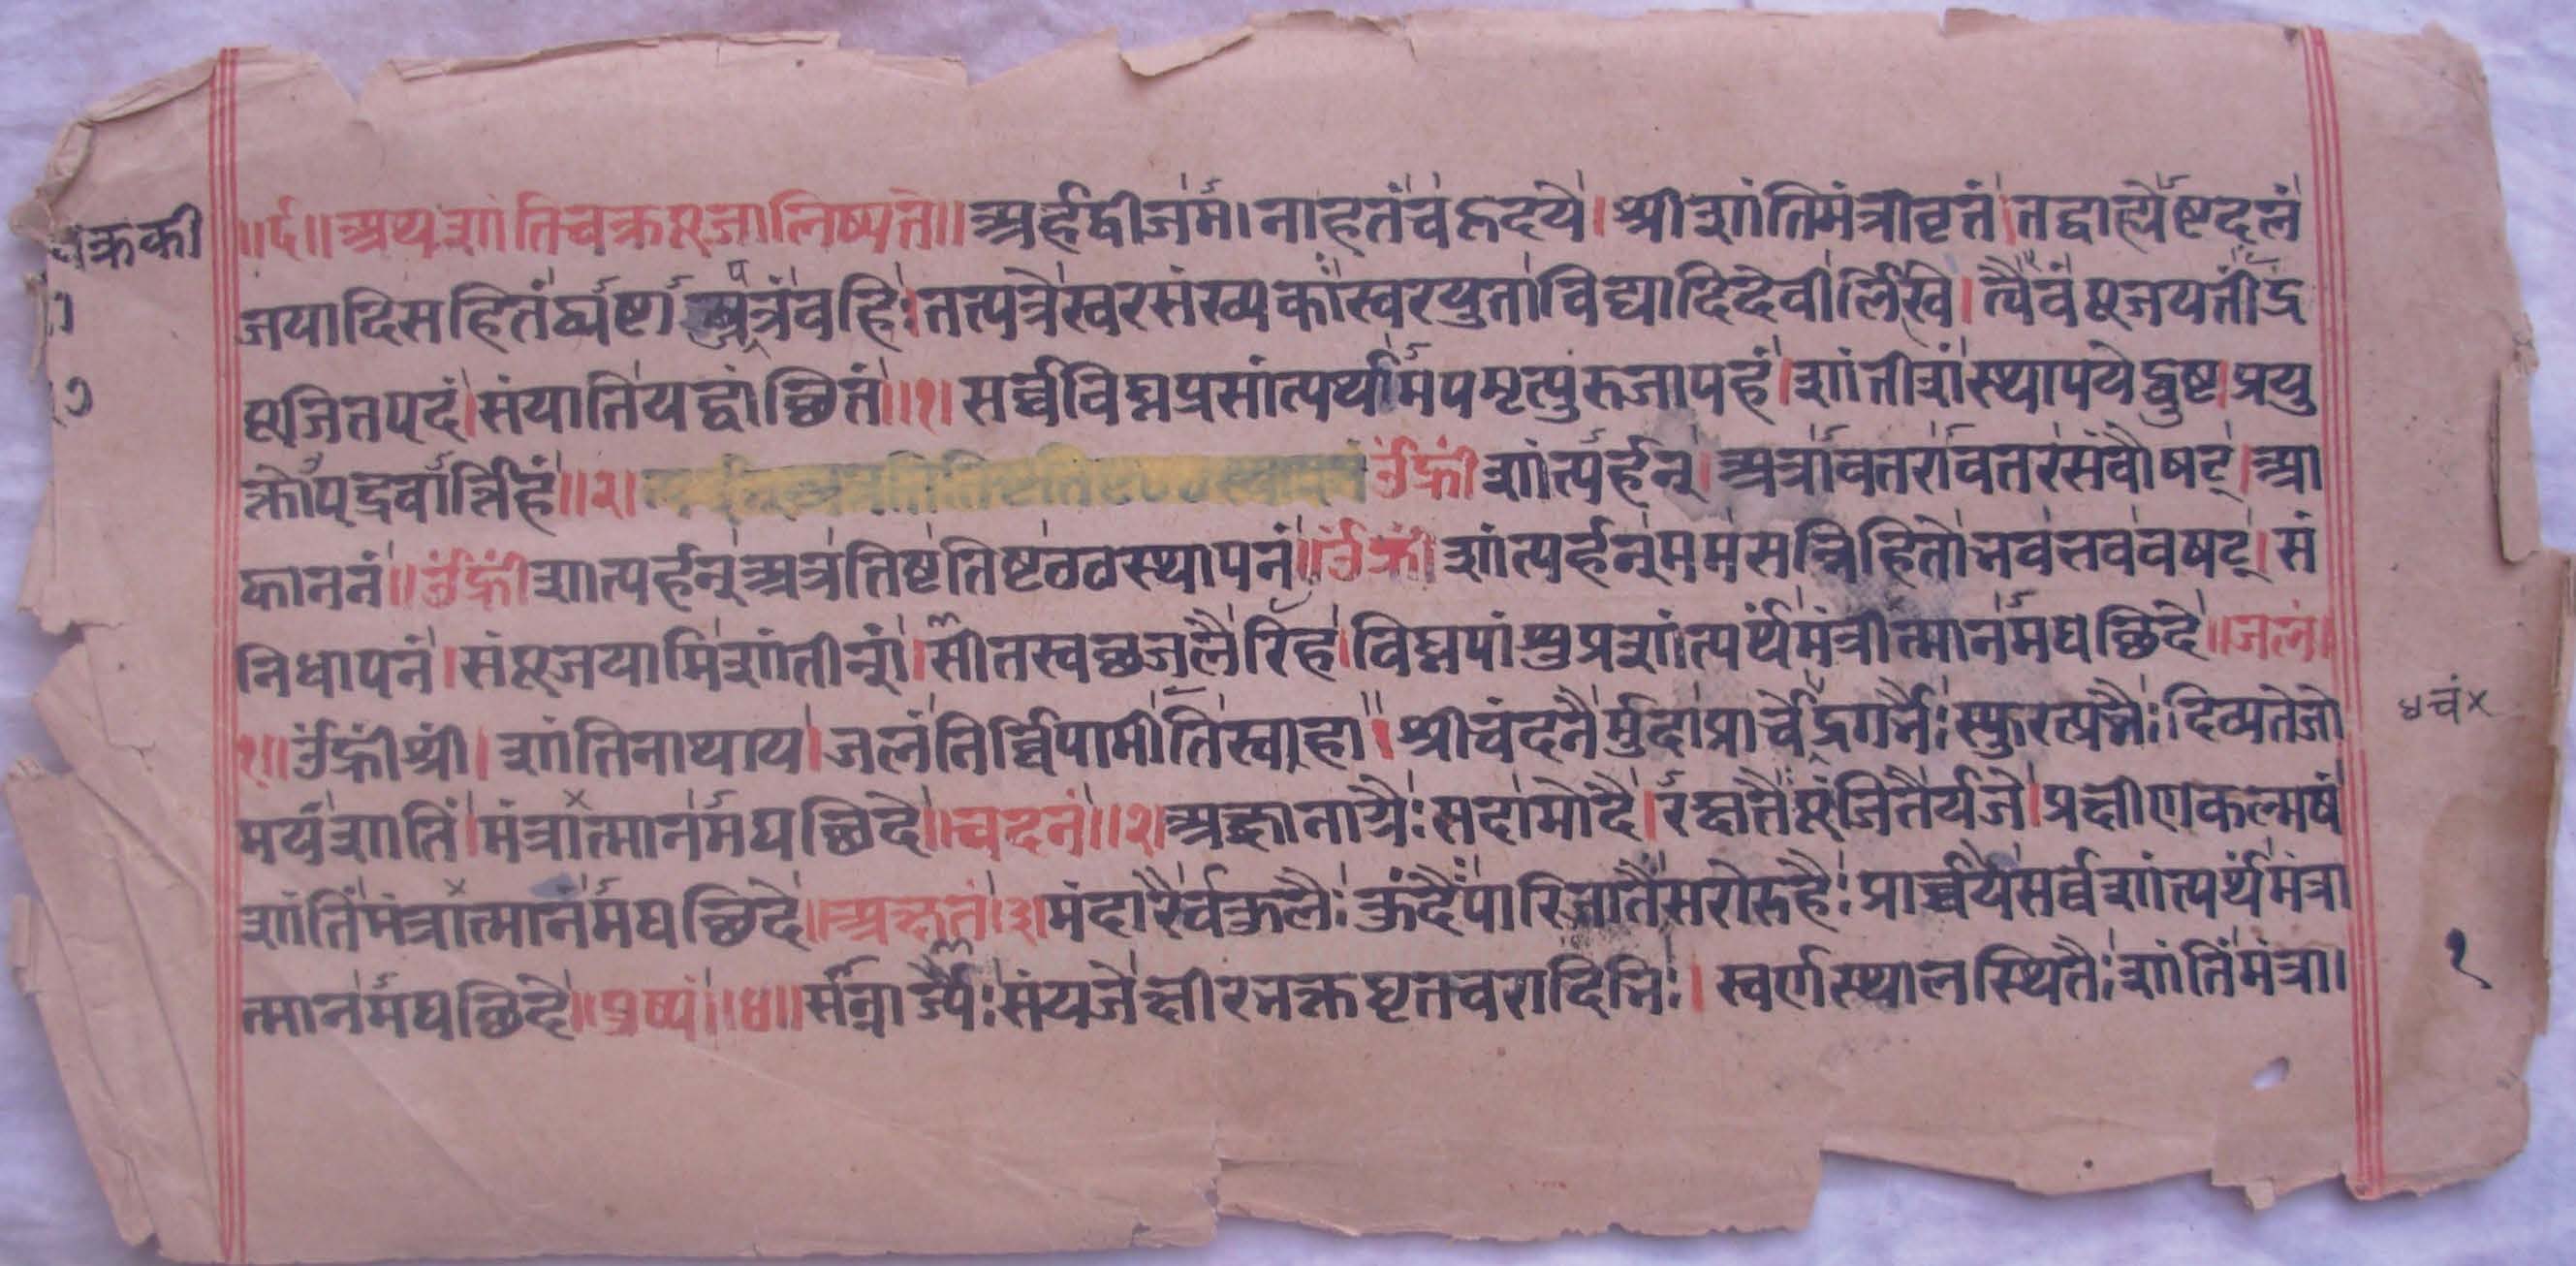 चक्रकी
॥र्द॥ अथ शांतिचक्रपूजा लिष्यते॥ अर्हद्बीजमनाहतं च हृदये। श्री शांतिमंत्रावृतं। तद्बाह्येष्टदलं
जयादिसहितं पत्रं वहिः। तत्पत्रे स्वरसंख्यका स्वरयुता विद्यादिदेवी लिखे। त्यैवं पूजयतींद्र
पूजितपदं। संयाति यद्वांछितं॥१। सर्व्वविघ्नप्रसांत्यर्थमपमृत्युरुजापहं। शांतीशं स्थापये द्दुष्ट। प्रयु
क्तोपद्रवार्त्तिहं॥२। उंह्रीं शांत्यर्हन्। अत्रावतरावतर संवौषट्। आ
काननं॥ उंह्रीं शात्यर्हन् अत्र तिष्ट तिष्ट ठठ स्थापनं॥ उंह्रीं शांत्यर्हन् मम सन्निहितो भव भव वषट्। सं
निधापनं। संपूजयामि शांतीशं। सीतस्वच्छजलैरिह। विघ्नपांशुप्रशांत्यर्थं मंत्रात्मानमघछिदे॥ जलं।
१॥ उंह्रीं श्रीं। शांतिनाथाय। जलं निर्व्विपामीति स्वाहा॥ श्रीचंदनैर्मुदा प्रार्चे द्रगर्भैः स्फुरत्प्रभैः दिव्यतेजो
मयं शातिं। मंत्रात्मानमघछिदे॥ चदनं॥२। सदामोदै। रक्षतै पूंजितैर्यजे। प्रक्षीणकल्मषं
शांतिंमंत्रात्मानमघछिदे॥ अक्षतं।३। मंदारैर्वकुलैः कुंदै पारिजातै सरोरुहैः प्रार्च्चये सर्व्वशांत्यर्थं मंत्रा
त्मानमघछिदे॥ पुष्पं॥४॥ संयजे क्षीरभक्तघृतवरादिभिः। स्वर्णस्थालस्थितैः शांतिंमंत्रा।
१